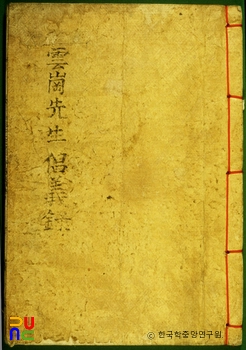 雲崗先生倡義錄
© 한국학중앙연구원